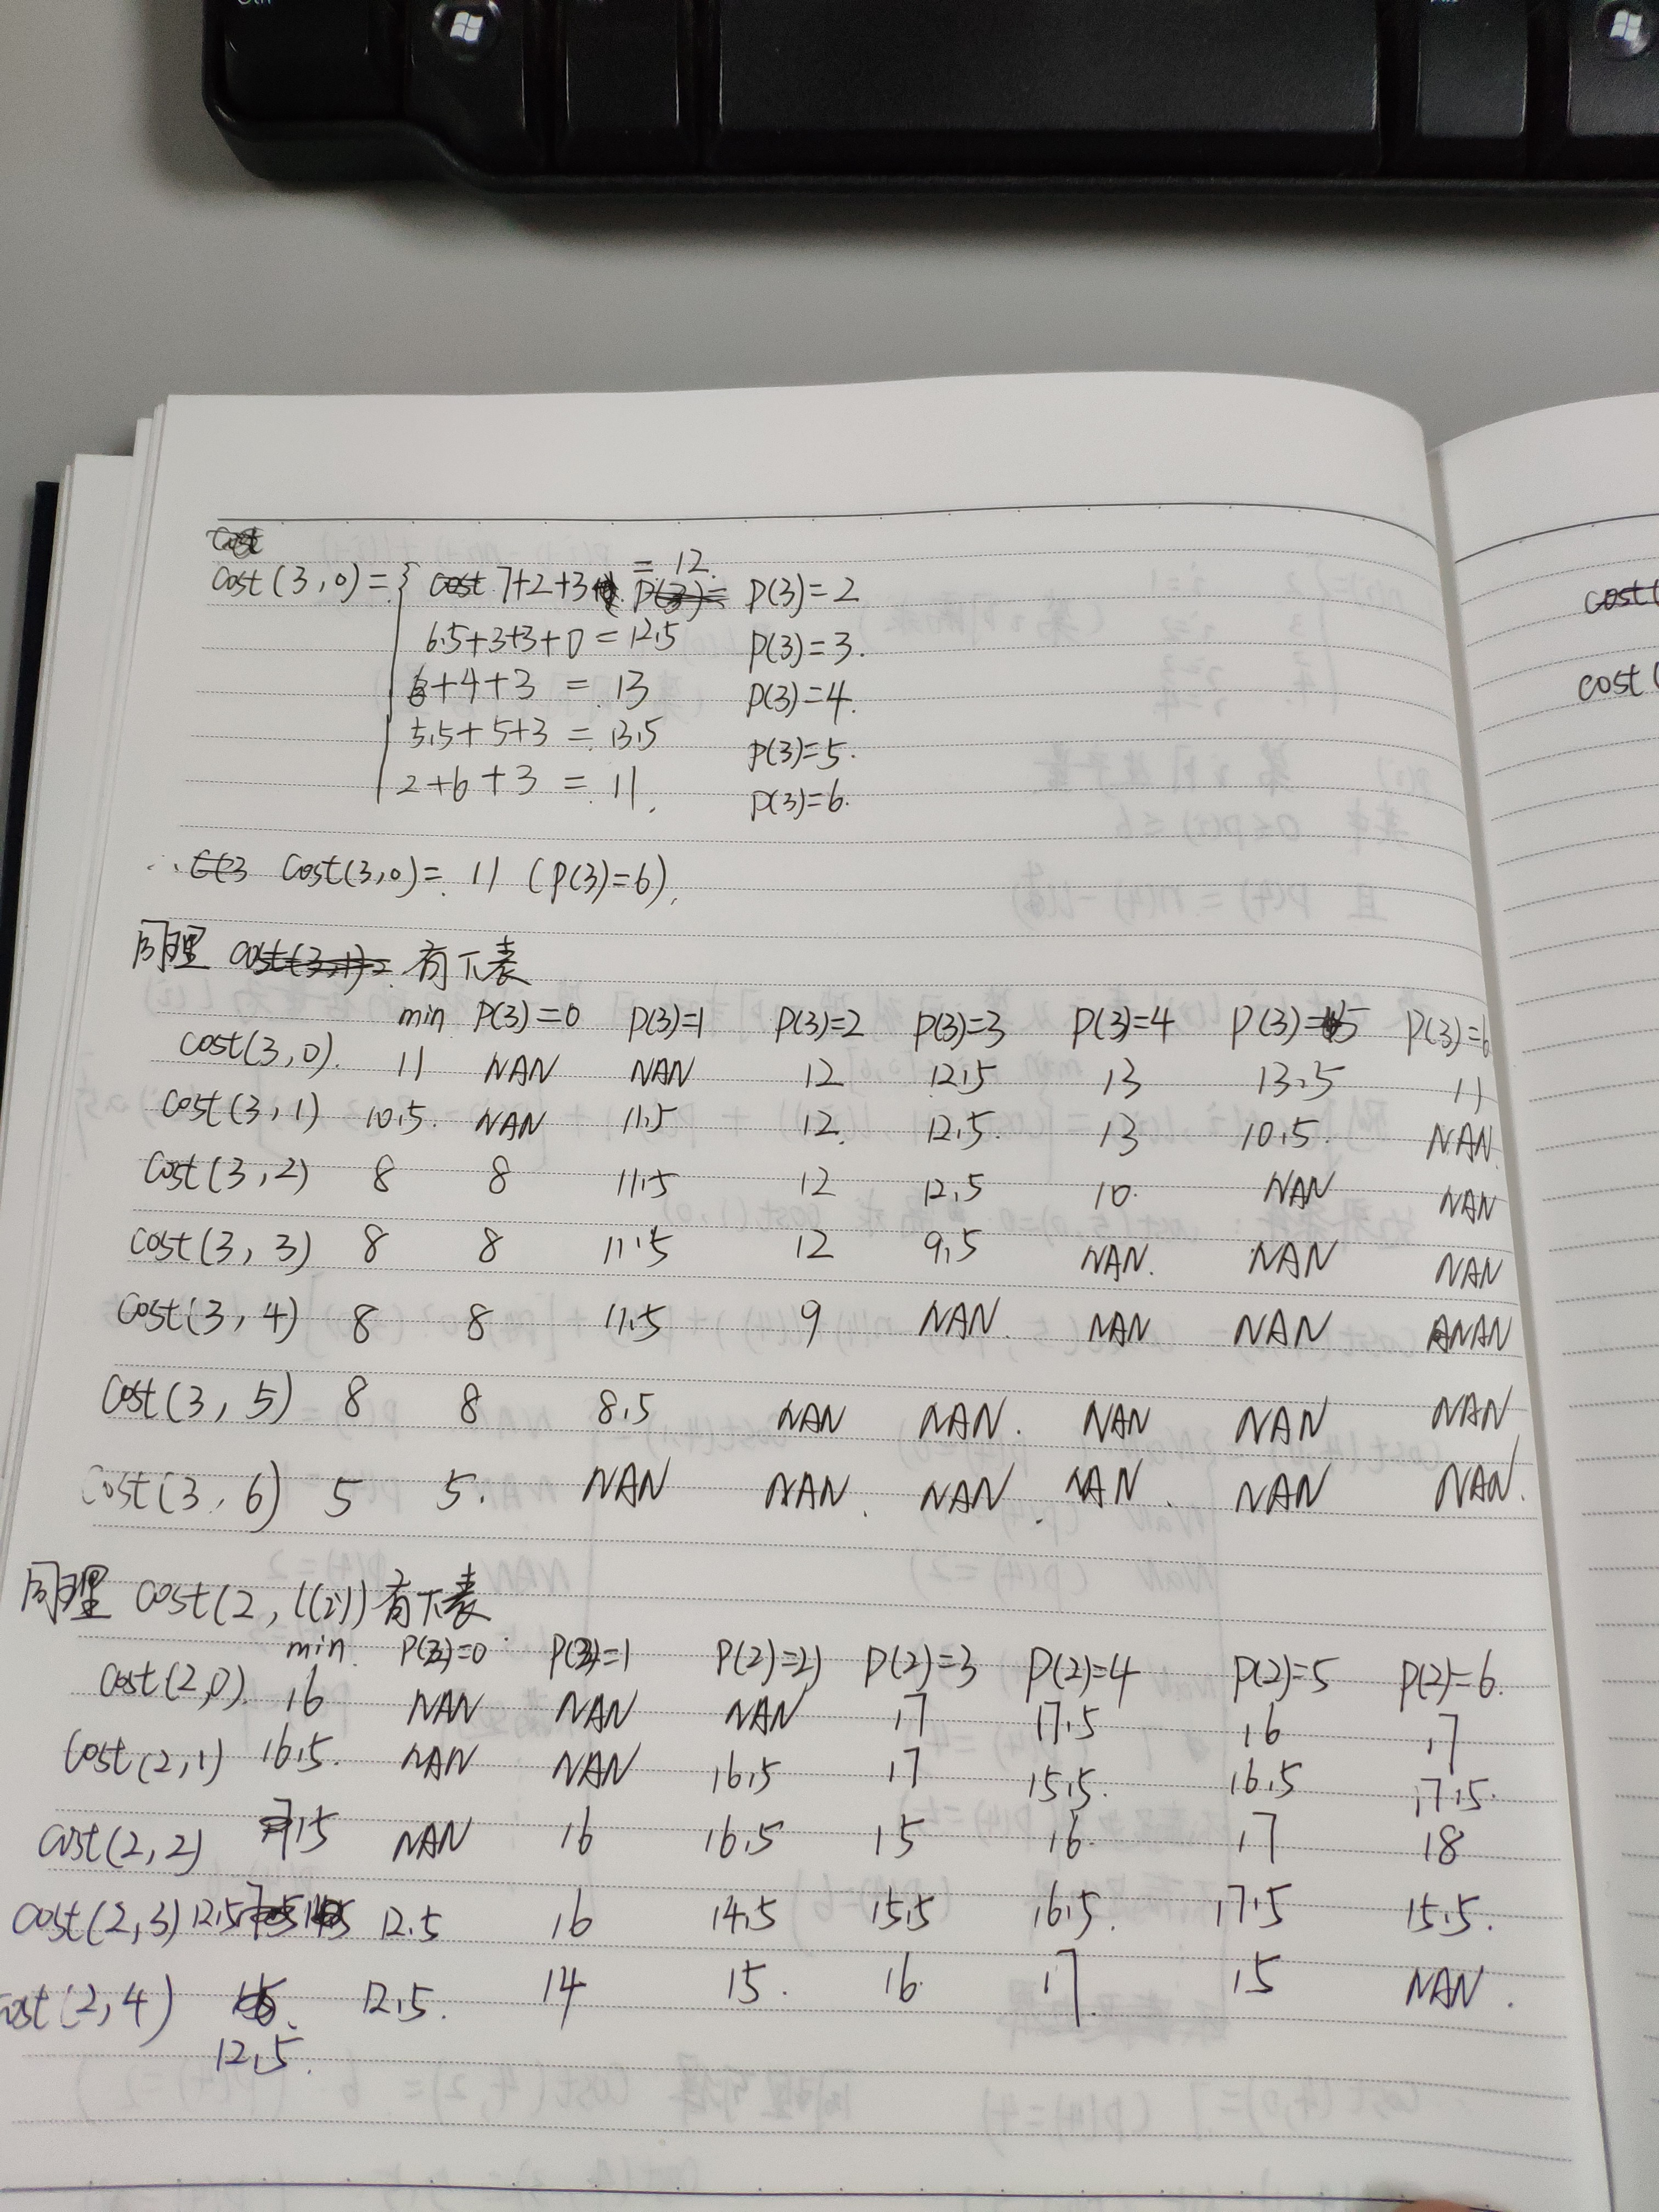 cost(3,0)= { 7+2+3 = 12 P(3)=2
6.5+3+3+0=12.5 P(3)=3.
6+4+3 = 13 P(3)=4.
5.5+5+3 = 13.5 P(3)=5.
2+6+3 = 11. P(3)=6.
∴ cost(3,0)= 11 (P(3)=6),
同理 有下表
min P(3)=0 P(3)=1 P(3)=2 P(3)=3 P(3)=4 P(3)=5 P(3)=6
cost(3,0). 11 NAN NAN 12 12.5 13 13.5 11
cost(3,1) 10.5. NAN 11.5 12. 12.5. 13 10.5. NAN.
cost(3,2) 8 8 11.5 12 12.5 10. NAN NAN
cost(3,3) 8 8 11.5 12 9.5 NAN. NAN NAN
cost(3,4) 8 8 11.5 9 NAN. NAN NAN NAN
cost(3,5) 8 8 8.5 NAN NAN. NAN NAN NAN
cost(3,6) 5 5. NAN NAN. NAN. NAN. NAN NAN.
同理 cost(2,l(2))有下表
min. P(2)=0 P(2)=1 P(2)=2) P(2)=3 P(2)=4 P(2)=5 P(2)=6.
cost(2,0). 16 NAN NAN NAN 17 17.5 16 17
cost(2,1) 16.5. NAN NAN 16.5 17 15.5. 16.5 17.5.
cost(2,2) 15 NAN 16 16.5 15 16. 17 18
cost(2,3) 12.5 12.5 16 14.5 15.5 16.5. 17.5 15.5.
cost(2,4) 12.5. 12.5. 14 15. 16. 17. 15 NAN.
cost(
cost(